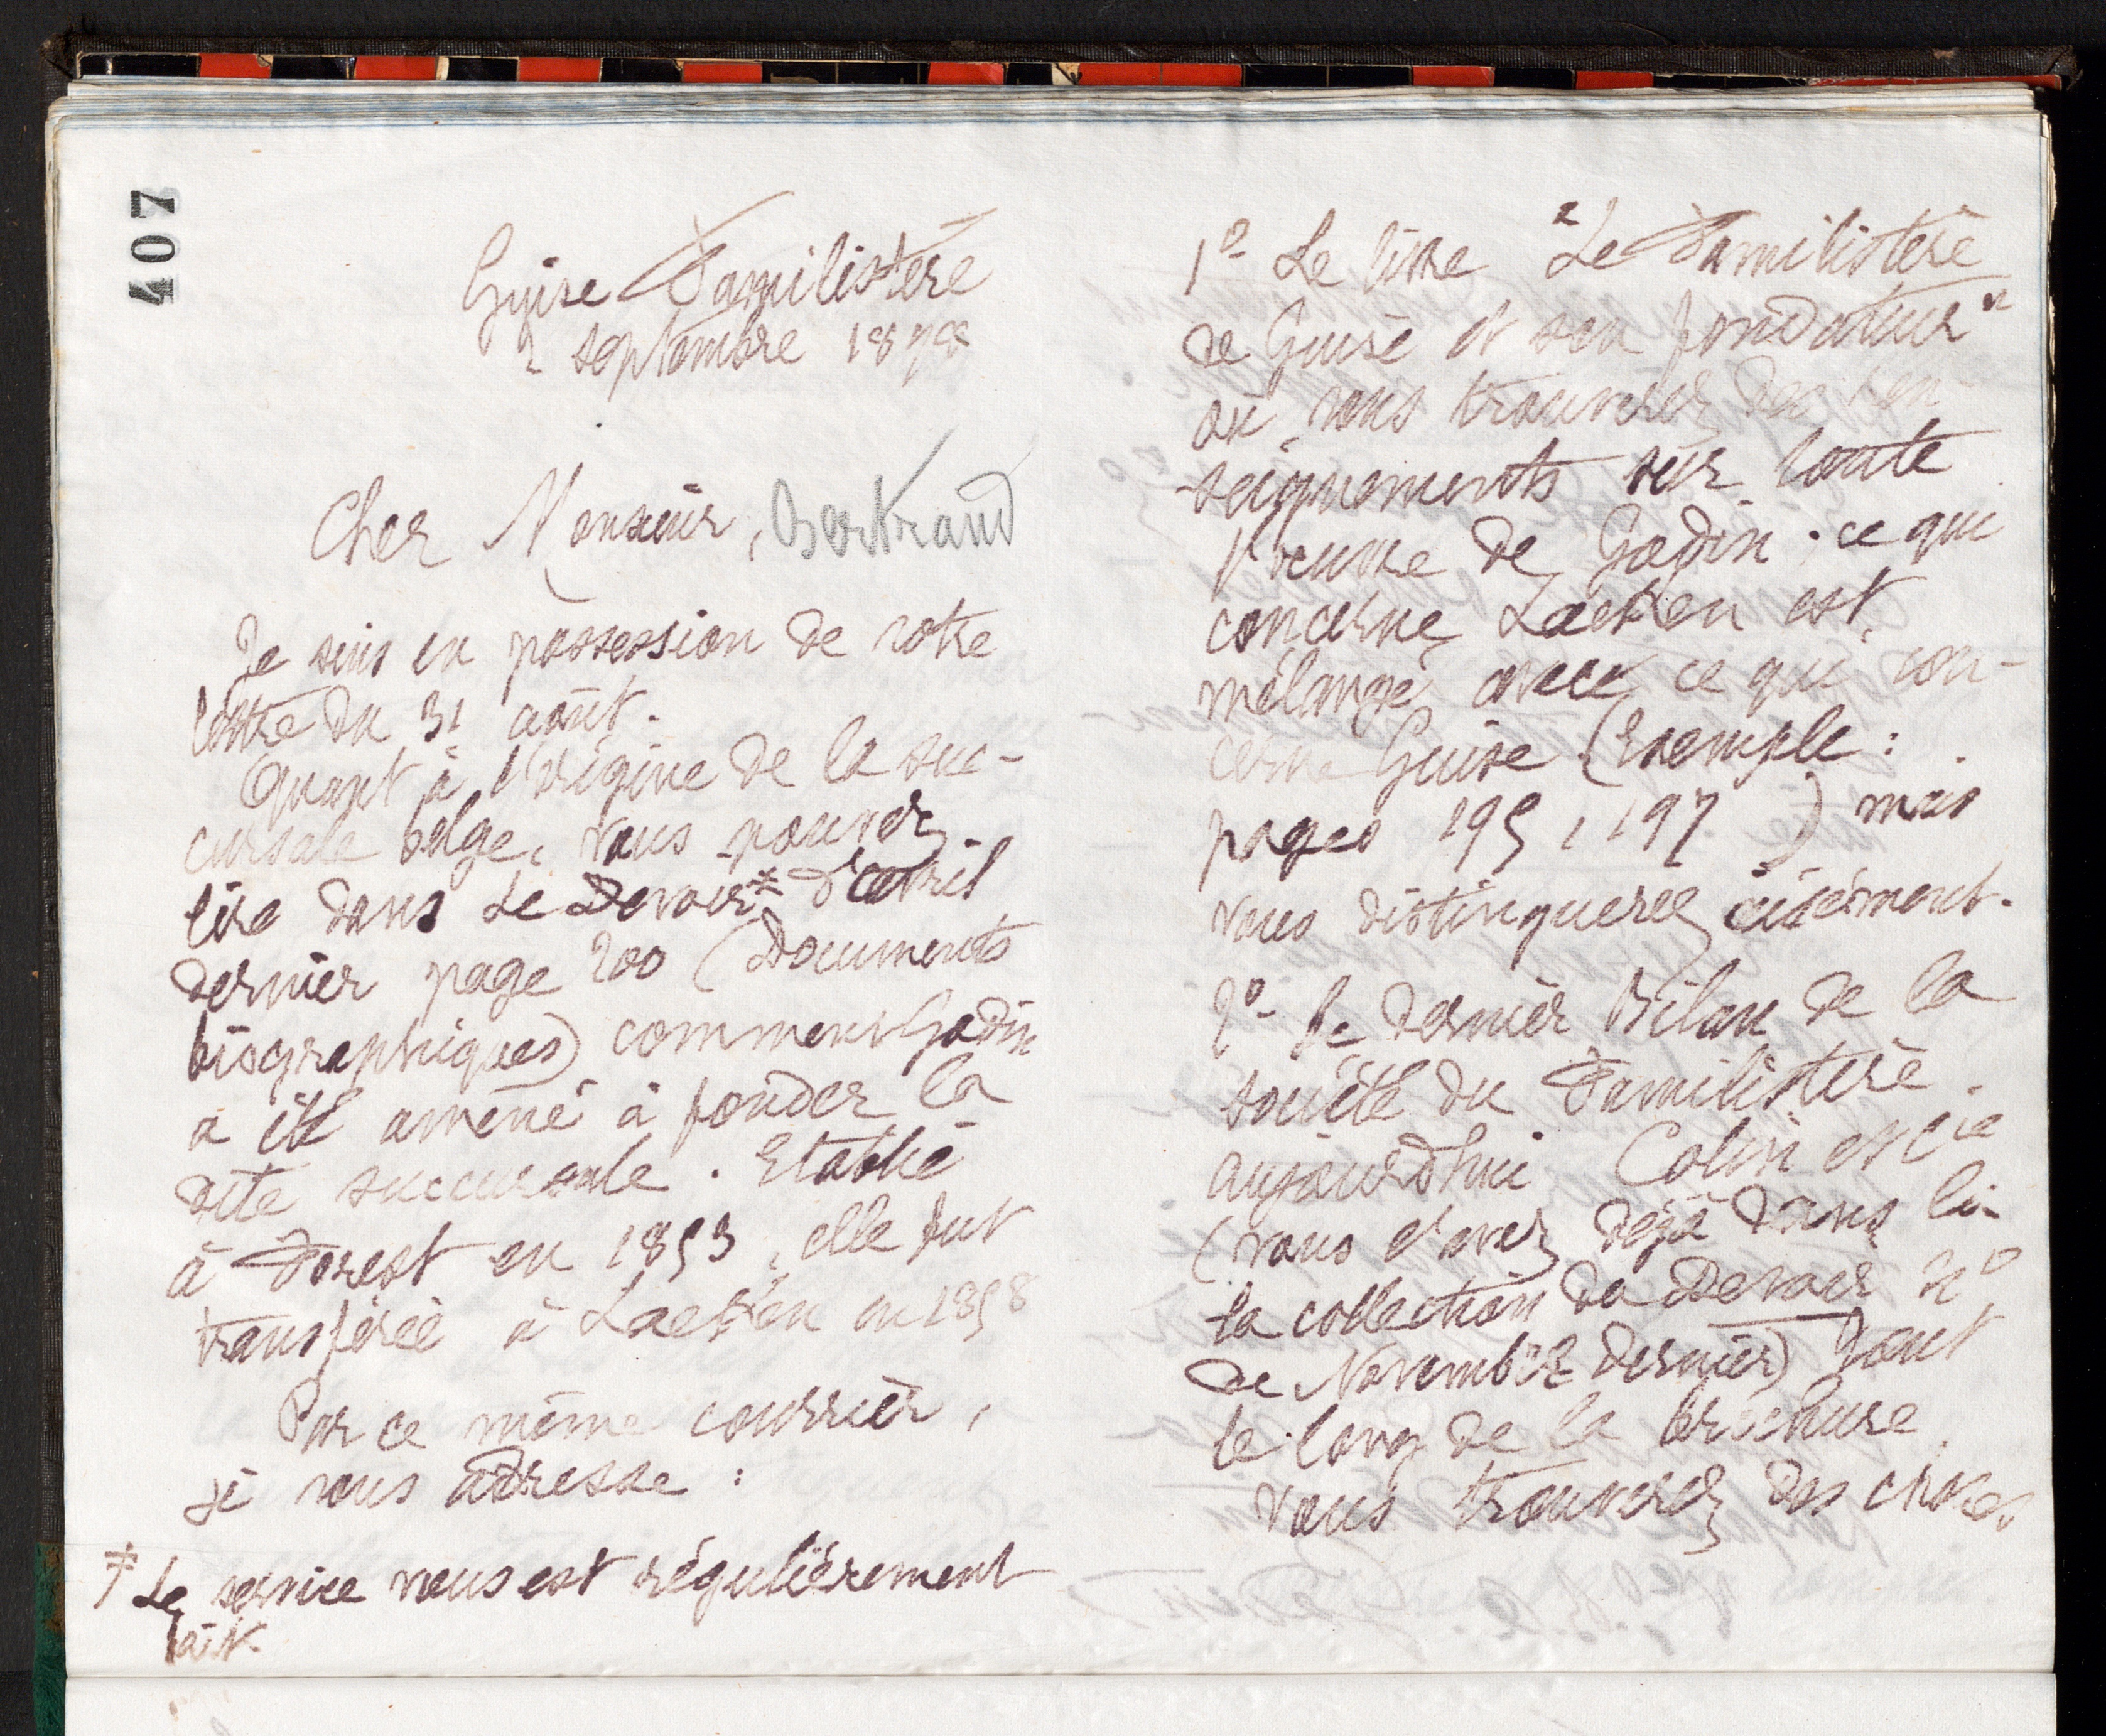 407
Guise Familistère
2 septembre 1898
Cher Monsieur, Bertrand
Je suis en possession de votre
lettre du 31 août.
Quant à l'origine de la suc-
cursale belge, vous pouvez
lire dans Le Devoir* d'avril
dernier page 200 (Documents
biographiques) comment Godin
a été amené à fonder la
dite succursale. Etablie
à Forest en 1853, elle fut
transférée à Laeken en 1858
Par ce même courrier,
je vous adresse :
* Le service vous est régulièrement
fait.
1º Le livre "Le Familistère
de Guise et son fondateur"
où vous trouverez des ren-
seignements sur toute
l'oeuvre de Godin. ce qui
concerne Laeken est
mélangé avec ce qui con-
cerne Guise (Exemple :
pages 195, 197 ) mais
vous distinguerez aisément.
2º Le dernier Bilan de la
société du Familistère.
aujourd'hui Colin et Cie
(vous l'avez déjà dans
la collection du Devoir nº
de Novembre dernier) Tout
le long de la brochure
vous trouverez des choses